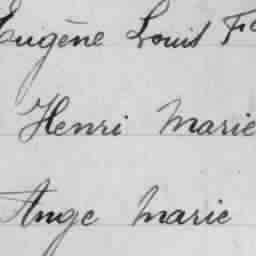 Eugène Louis
Henri Marie
Ange Marie